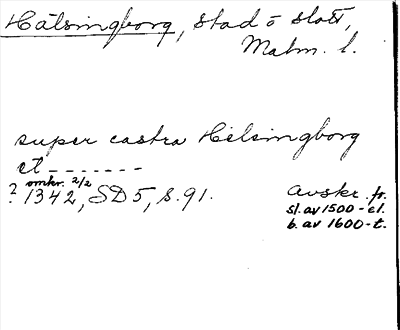 Hälsingborg, stad o slott,
Malm. l.
super castra Helsingborg
et -------
omkr. 2/2
? 1342, SD 5, s. 91.
Avskr. fr.
sl. av 1500- el.
b. av 1600-t.